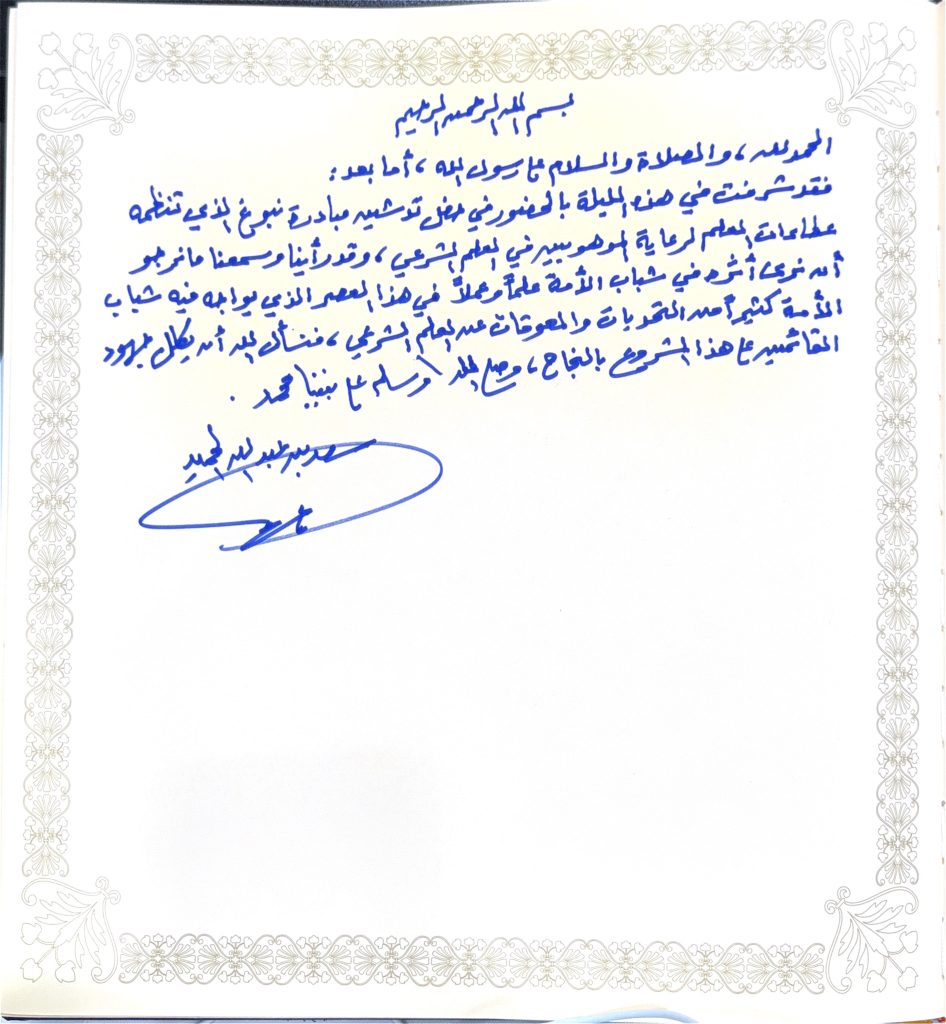 بسم الله الرحمن الرحيم
الحمد لله ، والصلاة والسلام على رسول الله ، أما بعد :
فقد شرفت في هذه الليلة بالحضور في حفل تدشين مبادرة نبوغ الذي تنظمه
عطاءات العلم لرعاية الموهوبين في العلم الشرعي ، وقد رأينا وسمعنا ما نرجو
أن نرى أثره في شباب الأمة علماً وعملاً في هذا العصر الذي يواجه فيه شباب
الأمة كثيراً من التحديات والمعوقات عن العلم الشرعي ، فنسأل الله أن يكلل جهود
القائمين على هذا المشروع بالنجاح ، وصلى الله وسلم على نبينا محمد .
سعد بن عبد الله الحميد